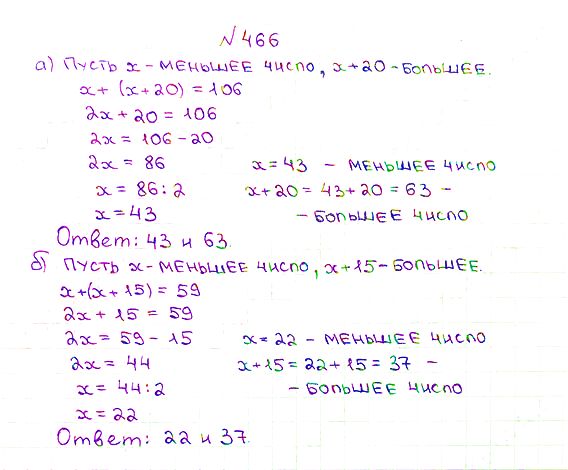 №466
а) Пусть x - меньшее число, x+20 - большее.
x+ (x+20) = 106
2x + 20 = 106
2x = 106 - 20
2x = 86
x = 43 - меньшее число
x = 86 : 2
x+20 = 43+20 = 63 -
x = 43
- большее число
Ответ: 43 и 63.
б) Пусть x - меньшее число, x+15 - большее.
x+(x+15) = 59
2x + 15 = 59
2x = 59 - 15
x = 22 - меньшее число
2x = 44
x+15 = 22+15 = 37 -
x = 44 : 2
- большее число
x = 22
Ответ: 22 и 37.